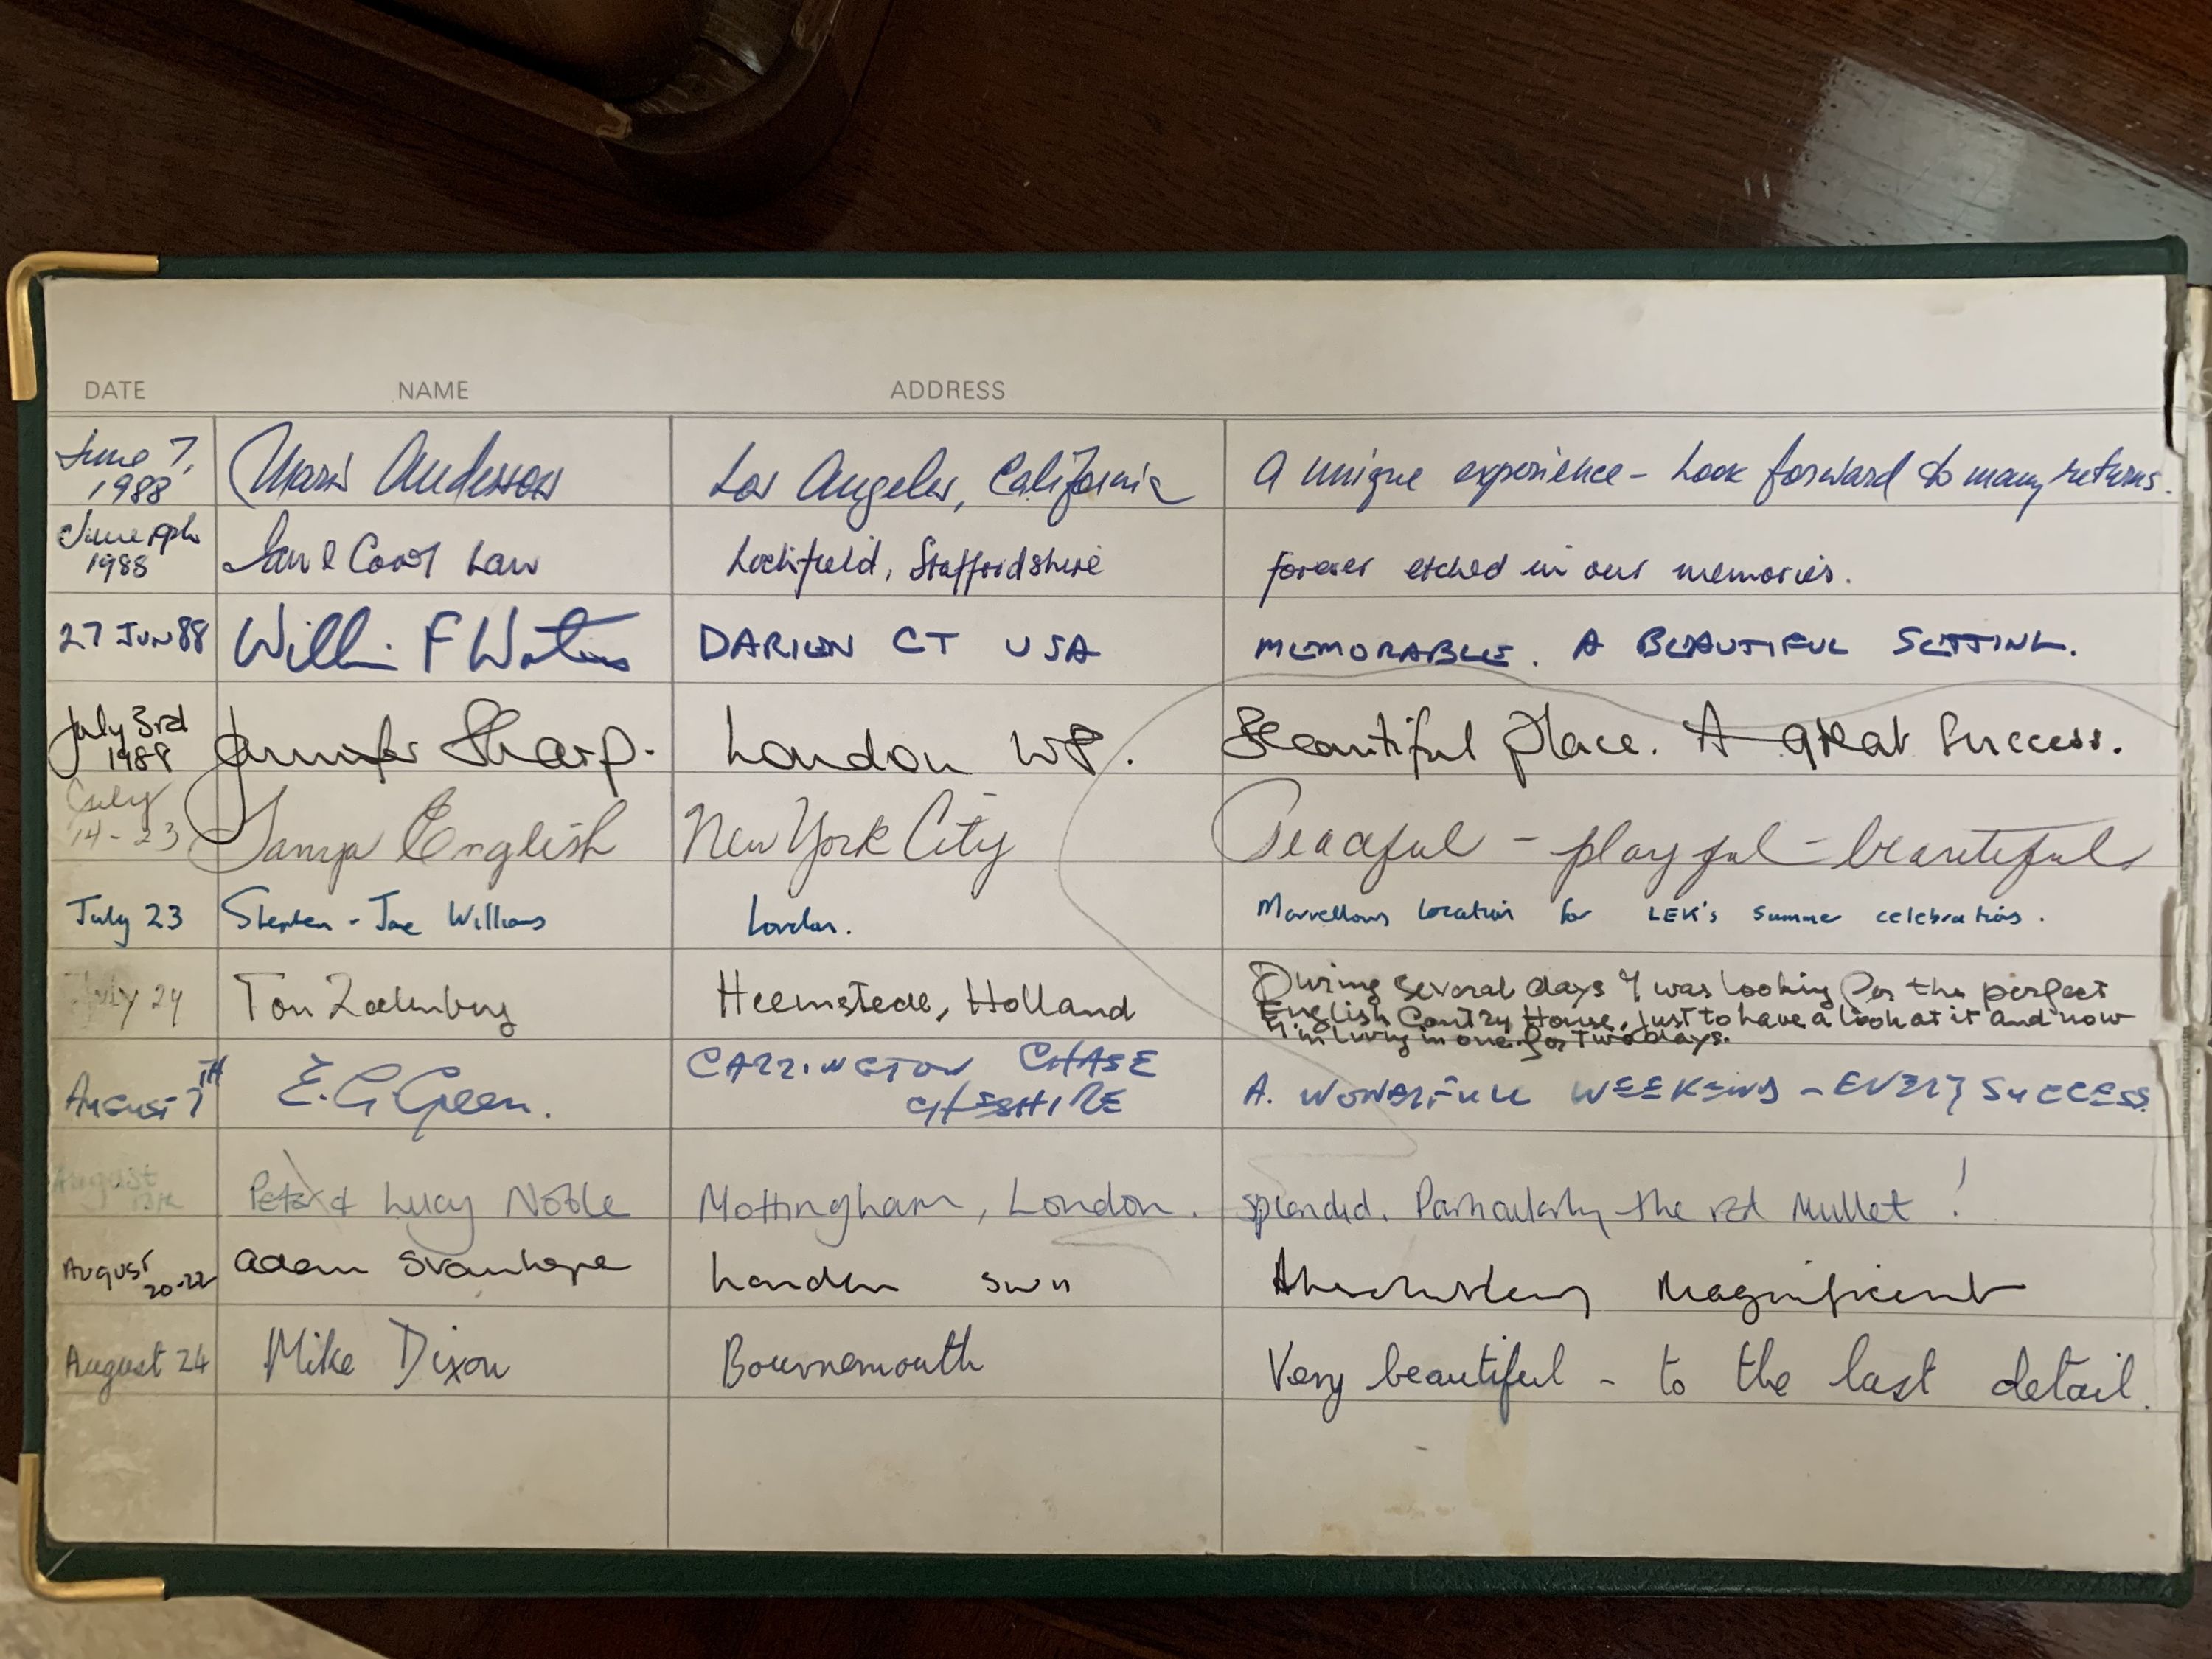 DATE NAME ADDRESS
June 7, 1988 Anderson Los Angeles, California A unique experience - Look forward to many returns.
June 1988 Law Staffordshire forever etched in our memories.
27 JUN 88 F DARIEN CT USA MEMORABLE. A BEAUTIFUL SETTING.
July 3rd 1988 Jennifer Sharp. London Beautiful place. A great success.
July 14-23 Tanya English New York City Peaceful - playful - beautiful
July 23 Stephen - Jane Williams London. Marvellous location for LEK's summer celebrations.
July 24 Ton Heemstede, Holland During several days I was looking for the perfect
English Country House, just to have a look at it and now
I'm living in one for two days.
August 7TH E.G Green. CARRINGTON CHASE
CHESHIRE A. WONDERFULL WEEKEND - EVERY SUCCESS
August Peter & Lucy Noble Mottingham, London. splendid. Particularly the red Mullet!
August 20-22 Adam Stanhope London SW11 Absolutely Magnificent
August 24 Mike Dixon Bournemouth Very beautiful - to the last detail.